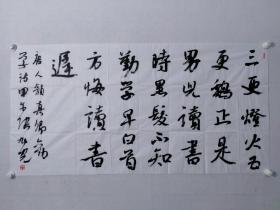 三更燈火五
更鷄正是
男兒讀書
時黑髮不知
勤學早白首
方悔讀書
遲
唐人顏真卿
學詩甲午